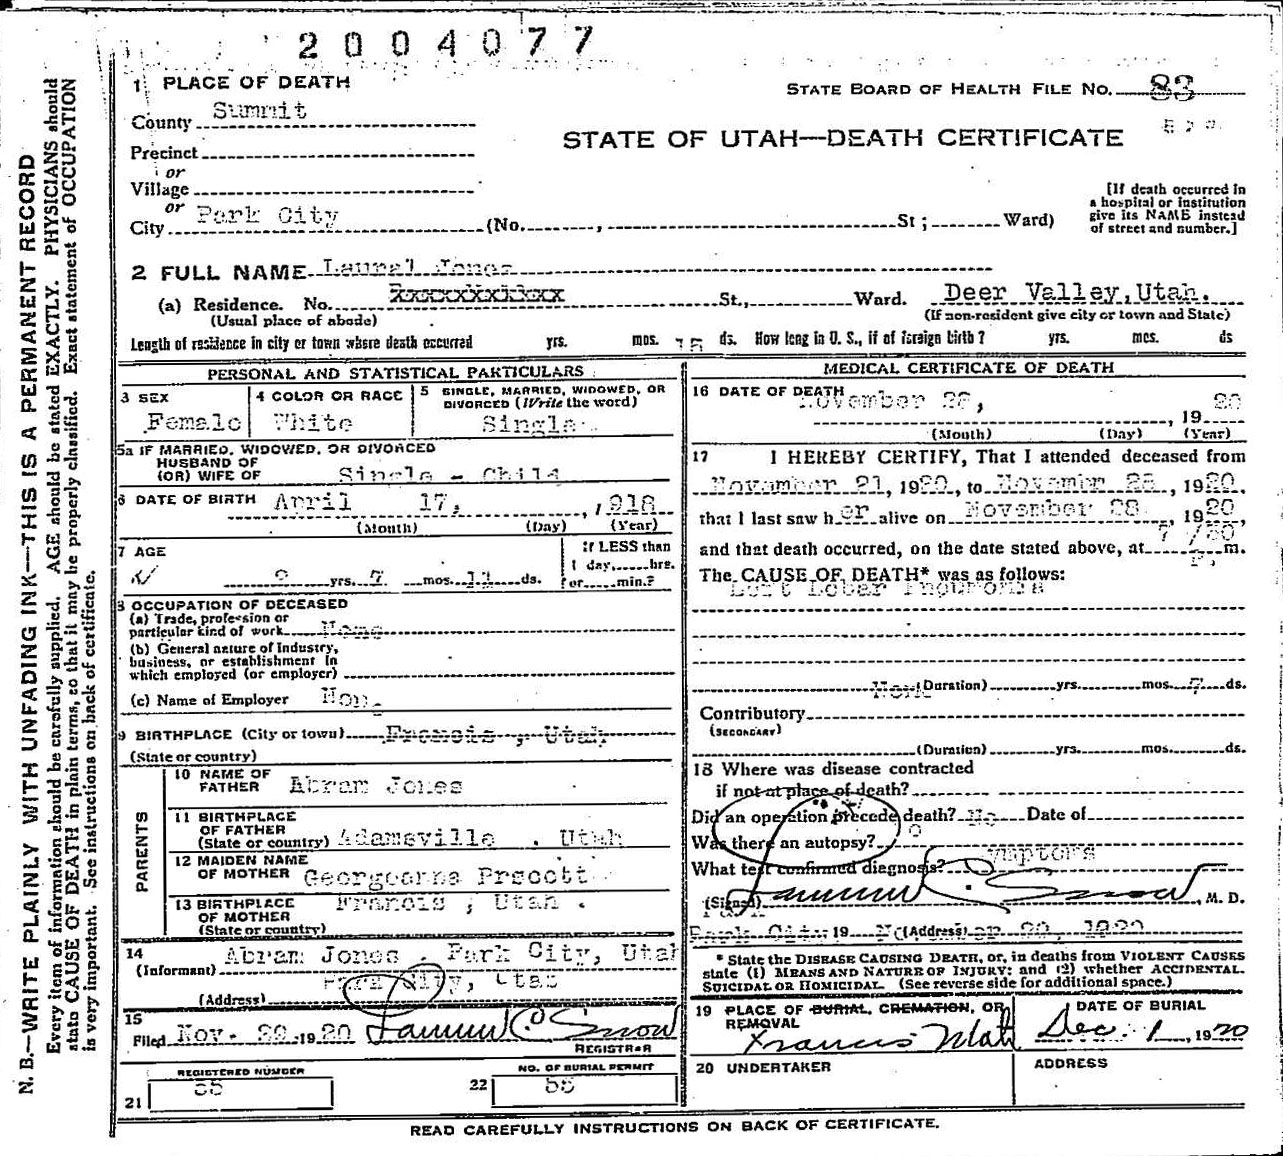 2004077
1 PLACE OF DEATH
STATE BOARD OF HEALTH FILE NO. 83
County Summit
STATE OF UTAH—DEATH CERTIFICATE
Precinct
or
Village
or
City Park City (No. , St ; Ward)
[If death occurred in
a hospital or institution
give its NAME instead
of street and number.]
2 FULL NAME Laural Jones
(a) Residence. No. St., Ward. Deer Valley, Utah.
(Usual place of abode)
(If non-resident give city or town and State)
Length of residence in city or town where death occurred yrs. mos. 15 ds. How long in U. S., if of foreign birth? yrs. mos. ds
PERSONAL AND STATISTICAL PARTICULARS
3 SEX
Female
4 COLOR OR RACE
White
5 SINGLE, MARRIED, WIDOWED, OR
DIVORCED (Write the word)
Single
5a IF MARRIED, WIDOWED, OR DIVORCED
HUSBAND OF
(OR) WIFE OF Single - Child
6 DATE OF BIRTH April 17, , 1918
(Month) (Day) (Year)
7 AGE
2 yrs. 7 mos. 11 ds.
If LESS than
1 day, hrs.
or min.?
8 OCCUPATION OF DECEASED
(a) Trade, profession or
particular kind of work None
(b) General nature of Industry,
business, or establishment in
which employed (or employer)
(c) Name of Employer Non
9 BIRTHPLACE (City or town) Francis , Utah
(State or country)
PARENTS
10 NAME OF
FATHER Abram Jones
11 BIRTHPLACE
OF FATHER
(State or country) Adamsville . Utah
12 MAIDEN NAME
OF MOTHER Georgeanna Prscott
13 BIRTHPLACE
OF MOTHER
(State or country) Francis , Utah .
14
(Informant) Abram Jones . Park City, Utah
(Address) Park City, Utah
15
Filed Nov. 29 1920 Lammon C. Snow
REGISTRAR
REGISTERED NUMBER
21 55
NO. OF BURIAL PERMIT
22 55
MEDICAL CERTIFICATE OF DEATH
16 DATE OF DEATH
November 28, , 1920
(Month) (Day) (Year)
17 I HEREBY CERTIFY, That I attended deceased from
November 21, 1920, to Novembr 28 , 1920
that I last saw her alive on November 28 1920,
and that death occurred, on the date stated above, at 7/30 P. m.
The CAUSE OF DEATH* was as follows:
Left Lobar Pneumonia
(Duration) yrs. mos. 7 ds.
Contributory
(SECONDARY)
(Duration) yrs. mos. ds.
18 Where was disease contracted
if not at place of death?
Did an operation precede death? No Date of
Was there an autopsy? o
What test confirmed diagnosis? ymptoms
(Signed) Lammon C. Snow, M. D.
Park
Park City 19 (Address) November 29, 1920
* State the DISEASE CAUSING DEATH, or, in deaths from VIOLENT CAUSES
state (1) MEANS AND NATURE OF INJURY; and (2) whether ACCIDENTAL.
SUICIDAL OR HOMICIDAL. (See reverse side for additional space.)
19 PLACE OF BURIAL, CREMATION, OR
REMOVAL
Francis Utah
DATE OF BURIAL
Dec. 1, 1920
20 UNDERTAKER
ADDRESS
READ CAREFULLY INSTRUCTIONS ON BACK OF CERTIFICATE.
N. B.—WRITE PLAINLY WITH UNFADING INK—THIS IS A PERMANENT RECORD
Every item of information should be carefully supplied. AGE should be stated EXACTLY. PHYSICIANS should
state CAUSE OF DEATH in plain terms, so that it may be properly classified. Exact statement of OCCUPATION
is very important. See instructions on back of certificate.